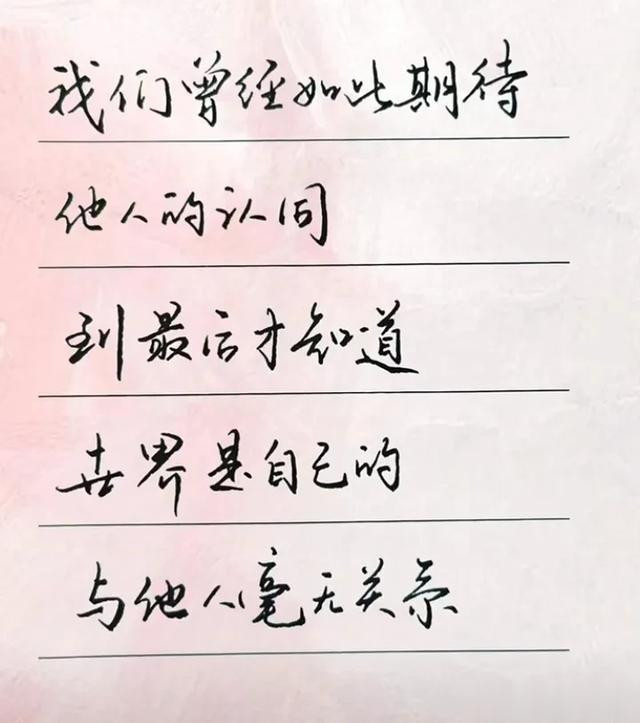 我们曾经如此期待
他人的认同
到最后才知道
世界是自己的
与他人毫无关系